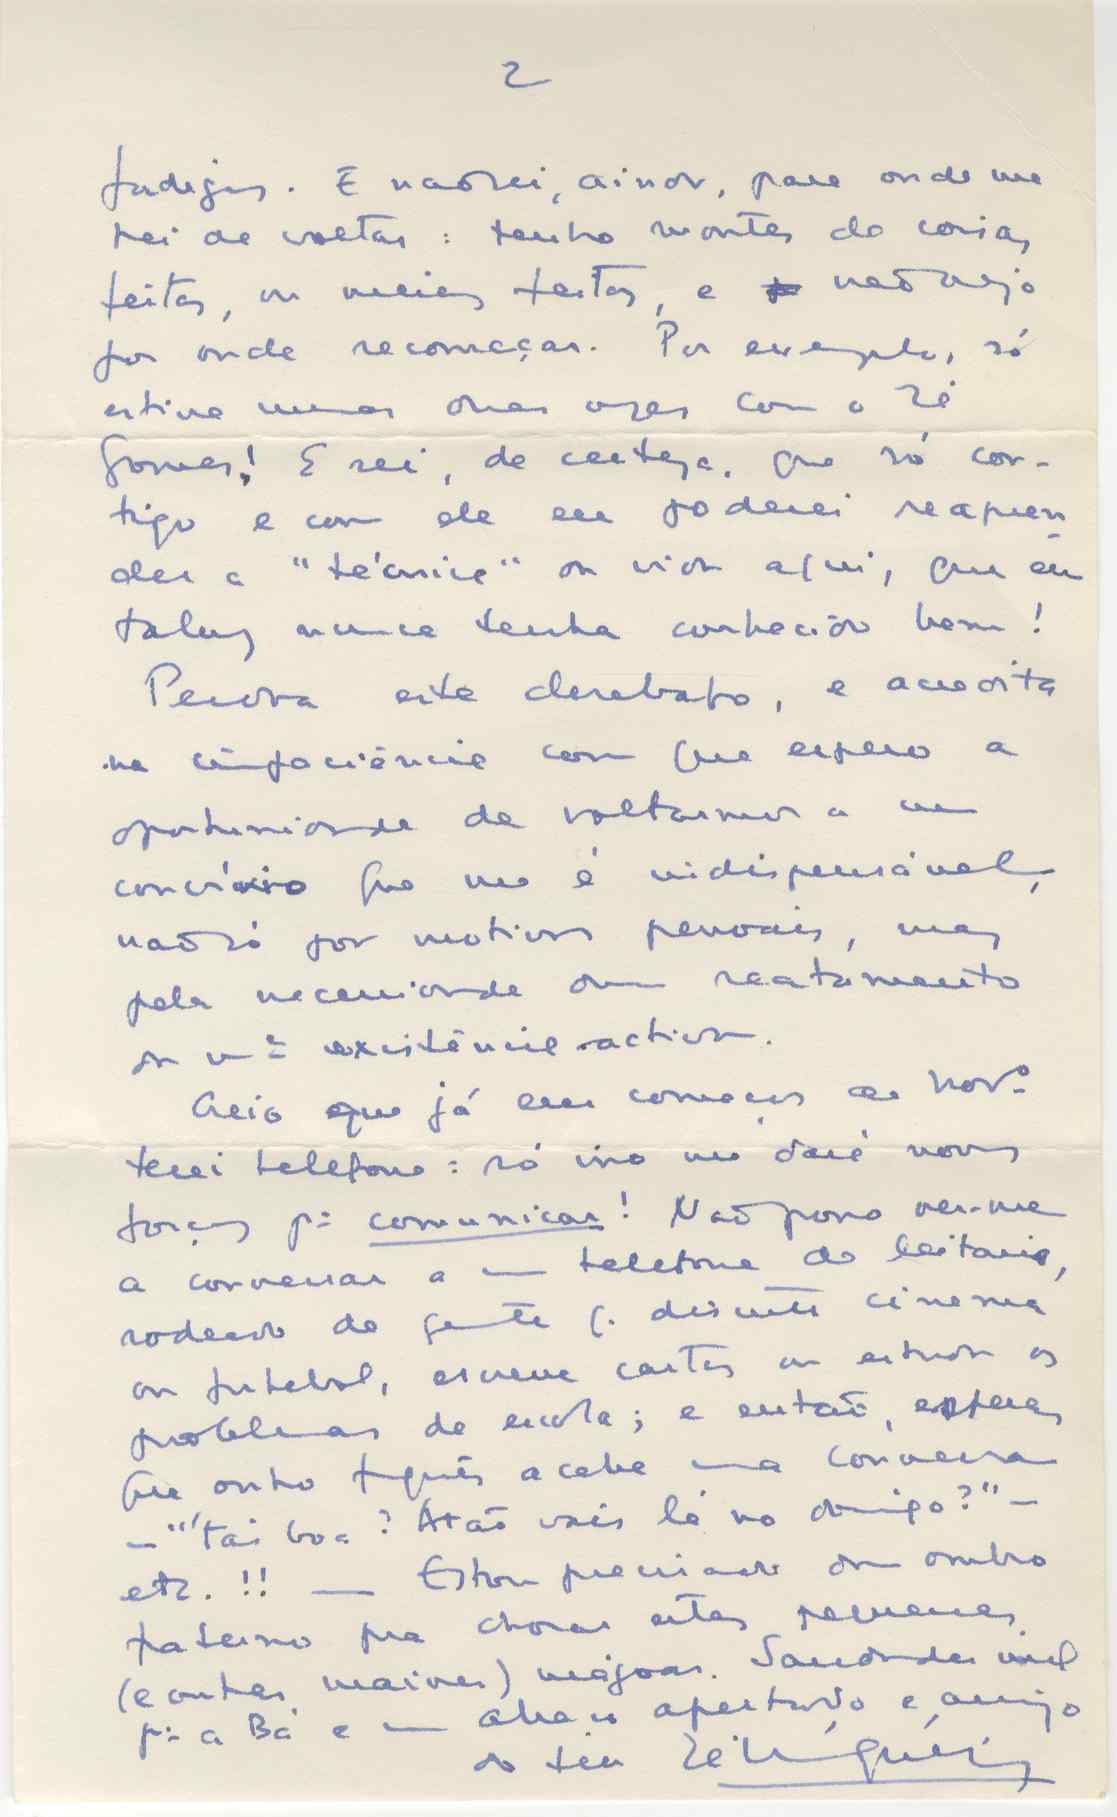 2
fadigas. E não sei, ainda, para onde me
hei de voltar: tenho montes de coisas
feitas, ou meias feitas, e não vejo
por onde recomeçar. Por exemplo, só
estive umas duas vezes com o Zé
Gomes! E sei, de certeza, que só con-
tigo e com ele eu poderei reapren-
der a "técnica" da vida aqui, que eu
talvez nunca tenha conhecido bem!
Perdoa este desabafo, e acredita
na impaciência com que espero a
oportunidade de voltarmos a um
convívio que me é indispensável,
não só por motivos pessoais, mas
pela necessidade dum reatamento
da mª existência activa.
Creio que já em começos de Novº
terei telefone: só isso me dará novas
forças pª comunicar! Não posso ver-me
a conversar a um telefone de leitaria,
rodeado de gente q. discute cinema
ou futebol, escreve cartas ou estuda os
problemas da escola; e então, esperas
que outro freguês acabe uma conversa
— "'Tás boa? Atão vais lá no domingo?" —
etc. !! — Estou precisado dum ombro
paterno pra chorar estas pequenas
(e outras maiores) mágoas. Saudades mil
pª a Bá e um abraço apertado e amigo
do teu Zé Miguéis